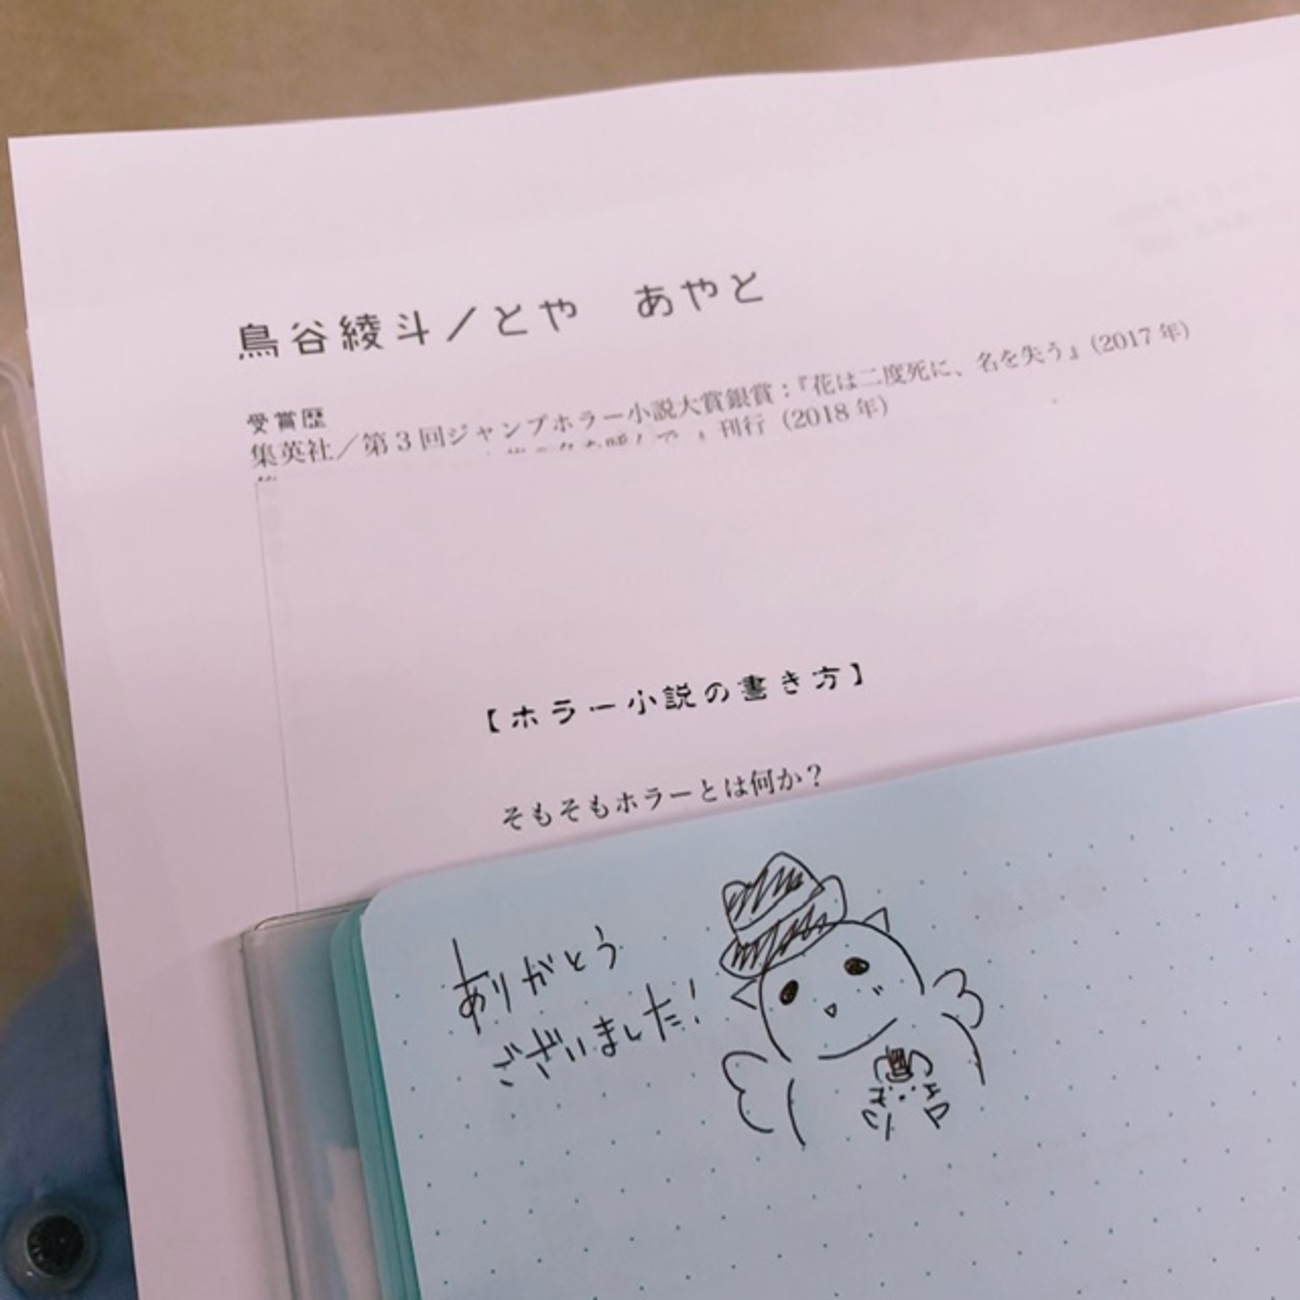 鳥谷綾斗／とや　あやと
受賞歴
集英社／第3回ジャンプホラー小説大賞銀賞：『花は二度死に、名を失う』（2017年）
』刊行（2018年）
【ホラー小説の書き方】
そもそもホラーとは何か？
ありがとう
ございました！